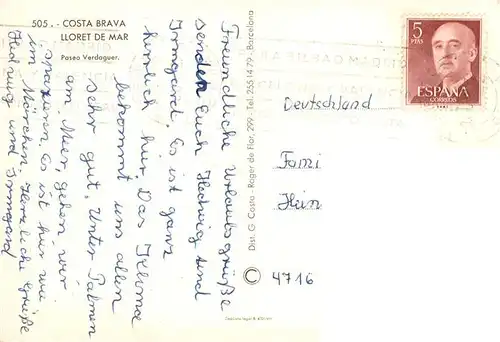 505. - COSTA BRAVA
LLORET DE MAR
Paseo Verdaguer.
Freundliche Urlaubsgrüße
senden Euch Hedwig und
Irmgard. Es ist ganz
herrlich hier. Das Klima
bekommt uns allen
sehr gut. Unter Palmen
am Meer, gehen wir
spazieren. Es ist hier wie
im Märchen. Herzliche Grüße
Hedwig und Irmgard
Dist. G. Costa - Roger de Flor, 299 - Tel. 255 14 79 - Barcelona
5
PTAS
ESPAÑA
CORREOS
Deutschland
Fami
Hein
4716